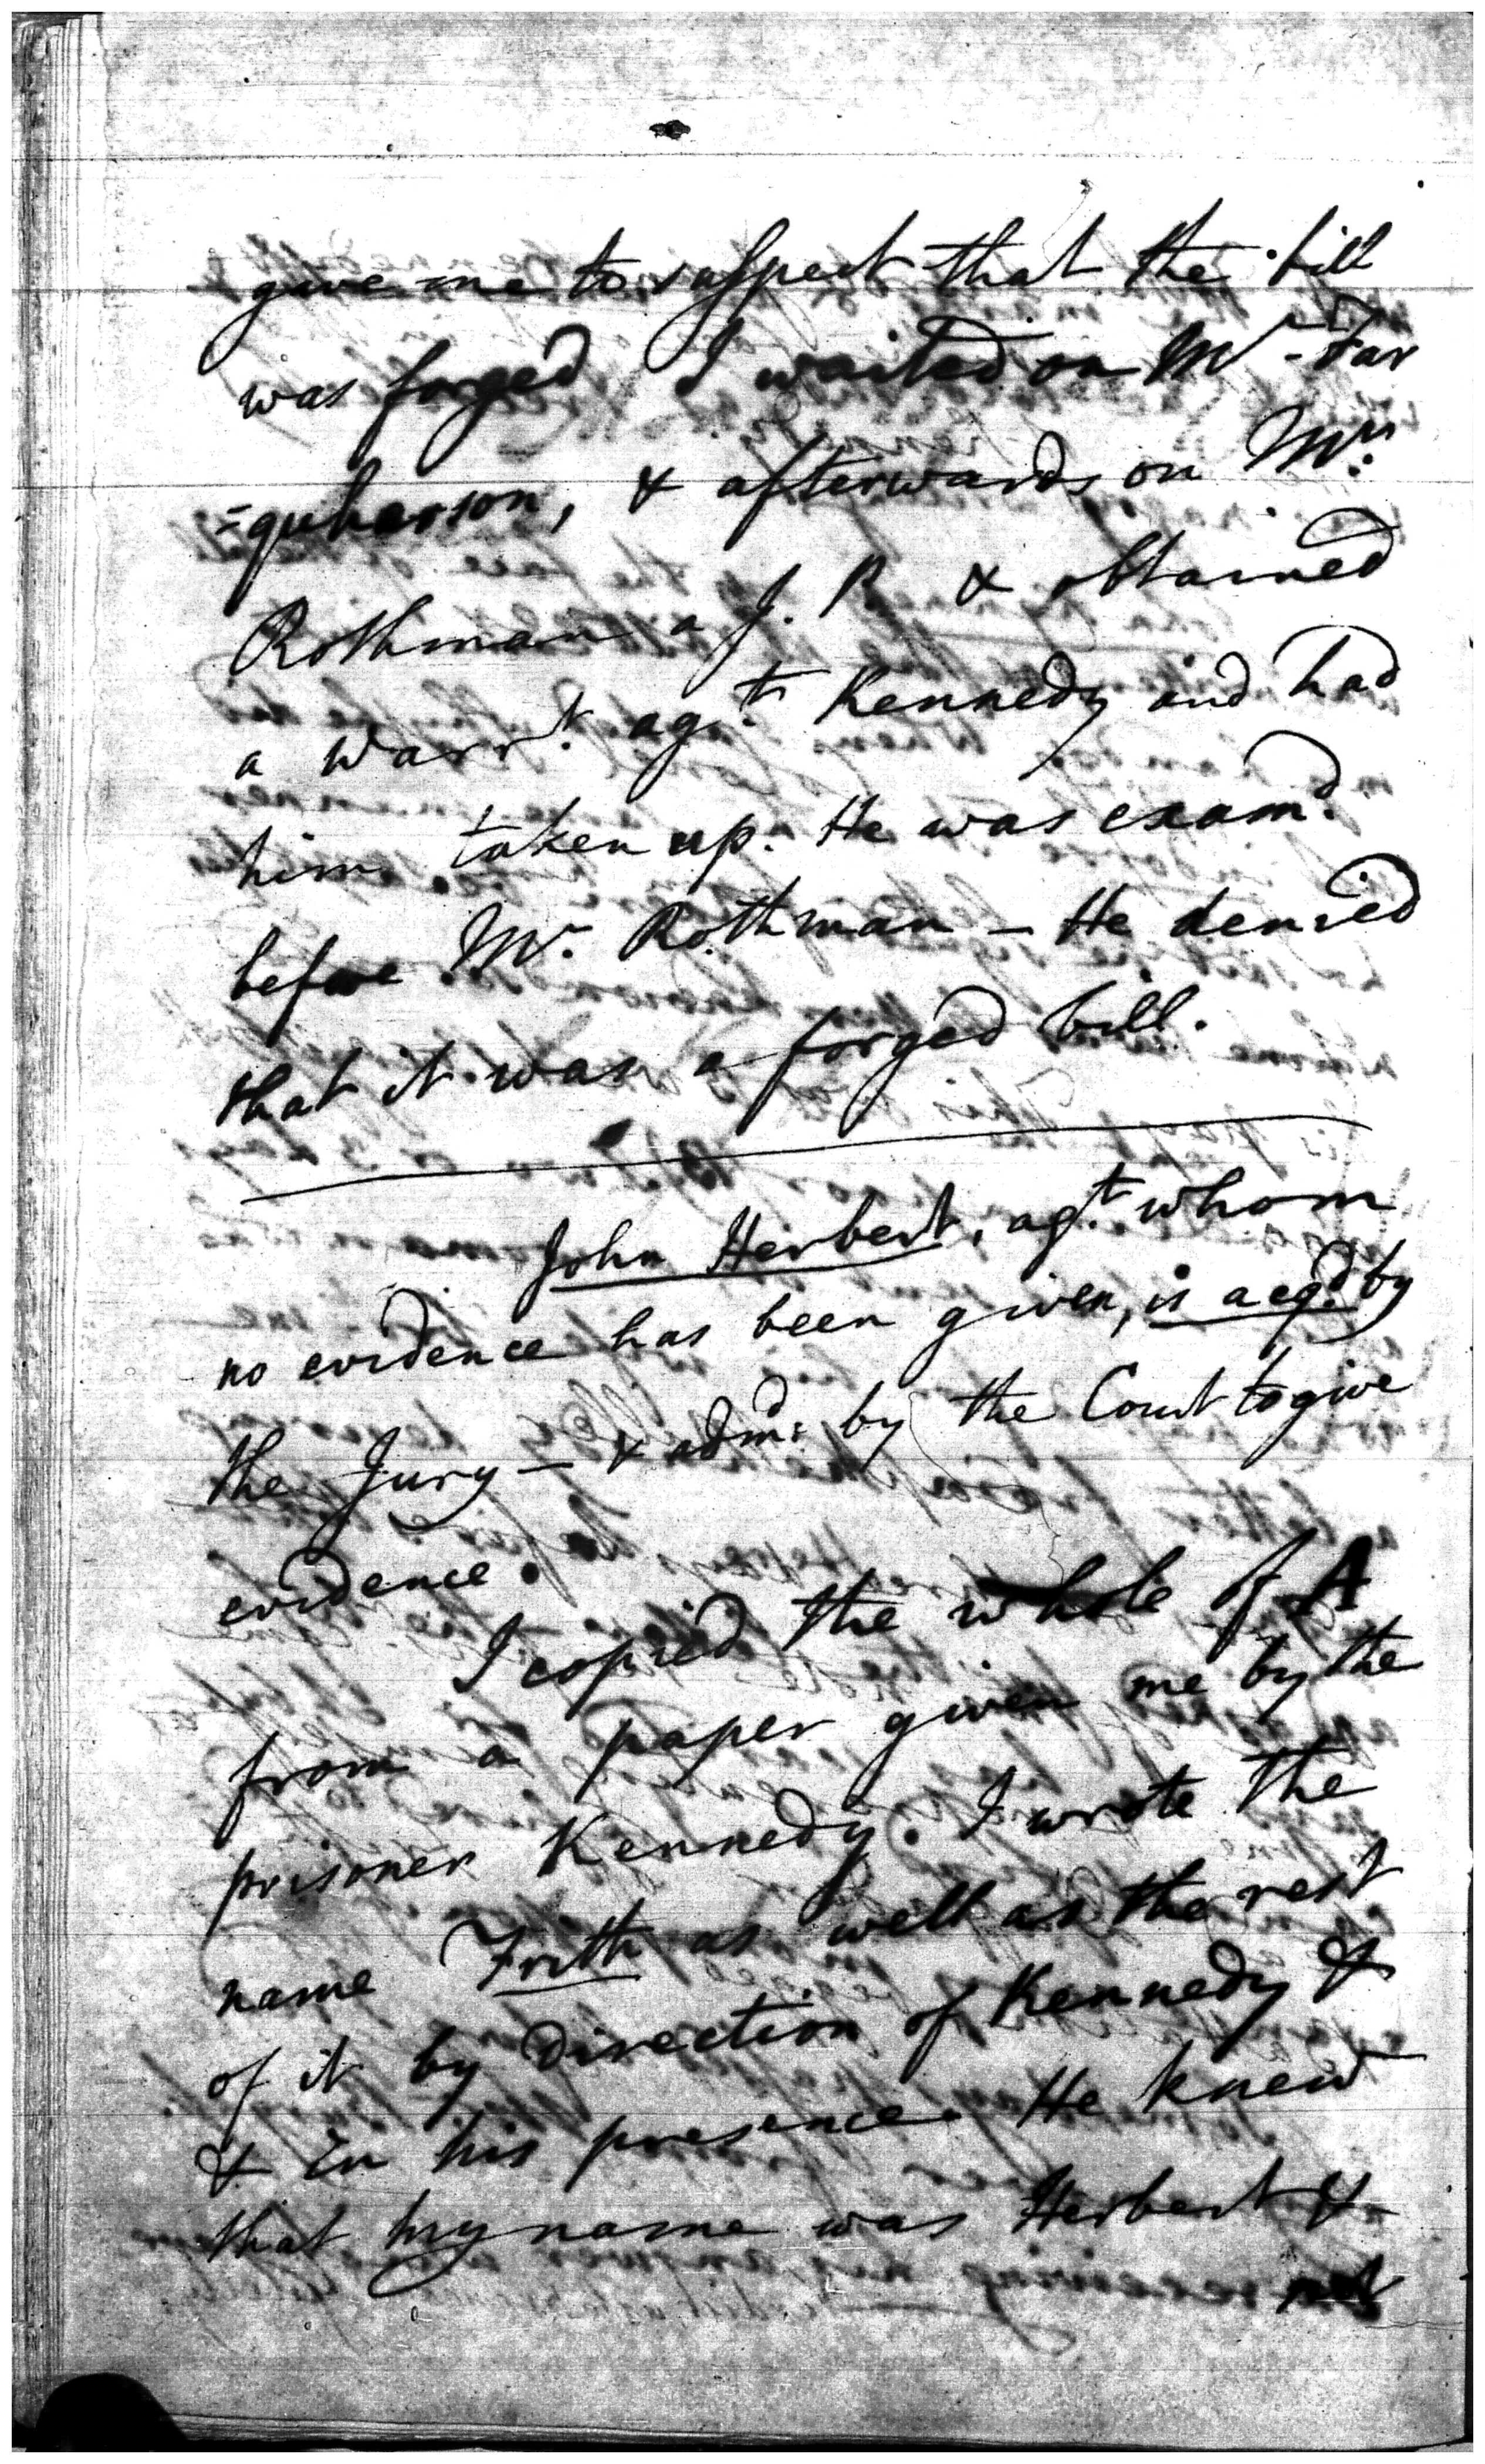 gave me to suspect that the bill
was forged I waited on Mr. Far
=quharson, & afterwards on Mr.
Rothman a J. P. & obtained
a warrt. agt. Kennedy and had
him taken up. He was examd.
before Mr. Rothman – He denied
that it was a forged bill.
John Herbert, agt. whom
no evidence has been given, is acqd. by
the Jury – & admd. by the Court to give
evidence.
I copied the whole of A
from a paper given me by the
prisoner Kennedy. I wrote the
name Frith as well as the rest
of it by direction of Kennedy &
& in his presence. He knew
that my name was Herbert &
not